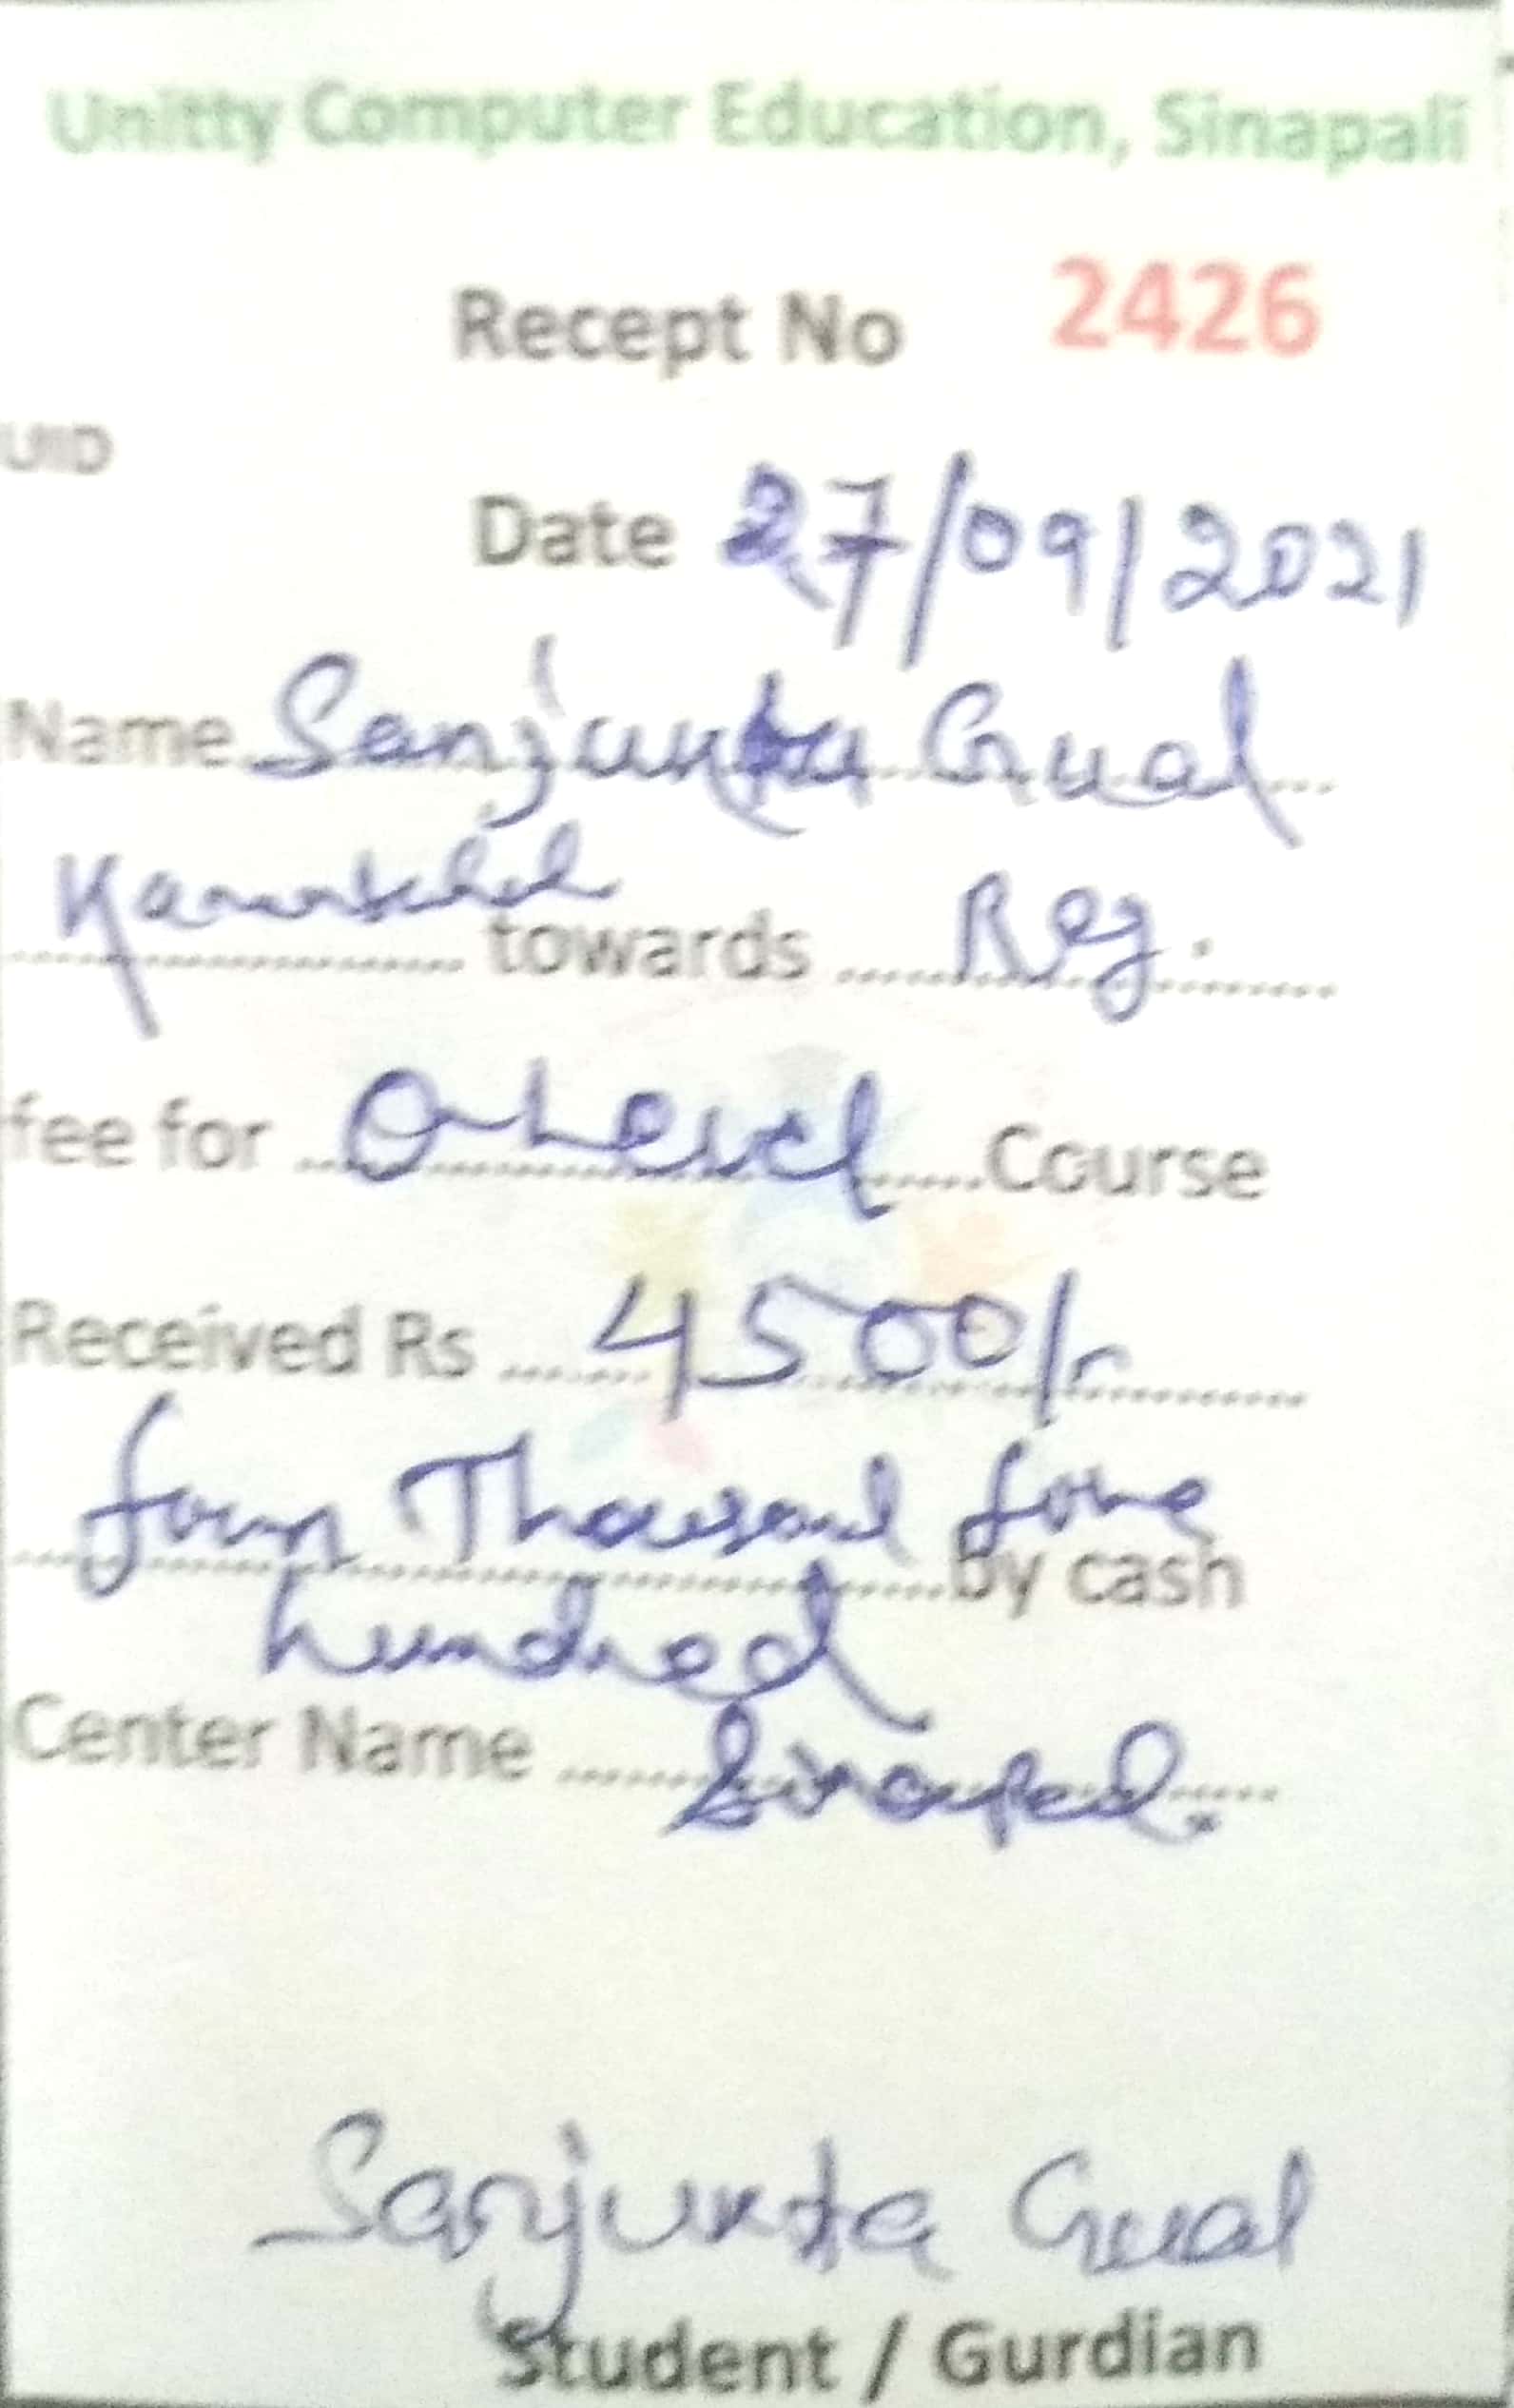 Unitty Computer Education, Sinapali
Recept No 2426
UID
Date 27/09/2021
Name Sanjukta Gual
towards Reg.
fee for O-Level Course
Received Rs 4500/-
four Thousand five
by cash
hundred
Center Name Sinapali
Sanjukta Gual
Student / Gurdian